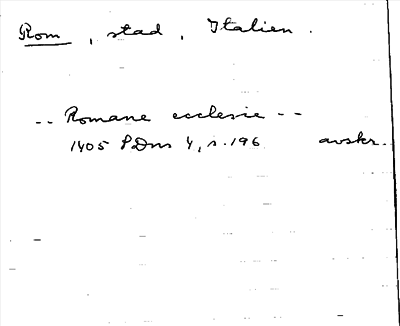 Rom, stad, Italien.
-- Romane ecclesie --
1405 SDns 4, s. 196 avskr.